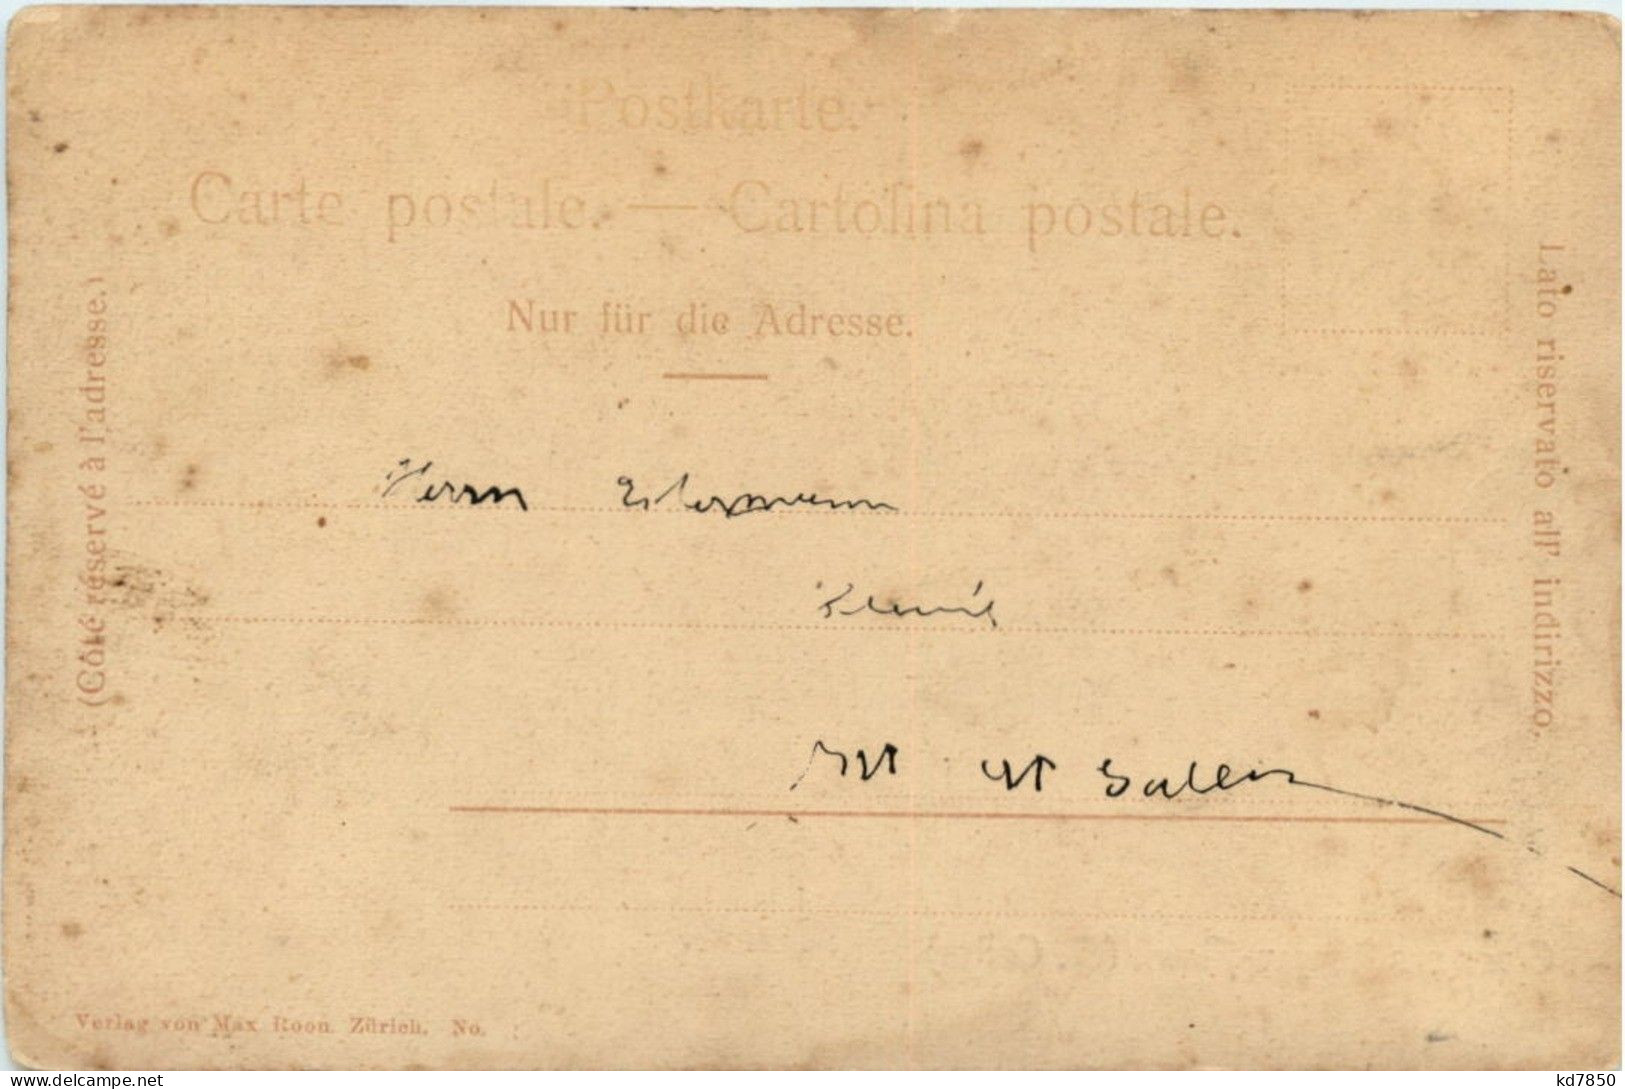 Postkarte.
Carte postale. — Cartolina postale.
Nur für die Adresse.
(Côté réservé à l'adresse.)
Lato riservato all' indirizzo.
Herrn
Verlag von Max Roon. Zürich. No.
delcampe.net
kd7850